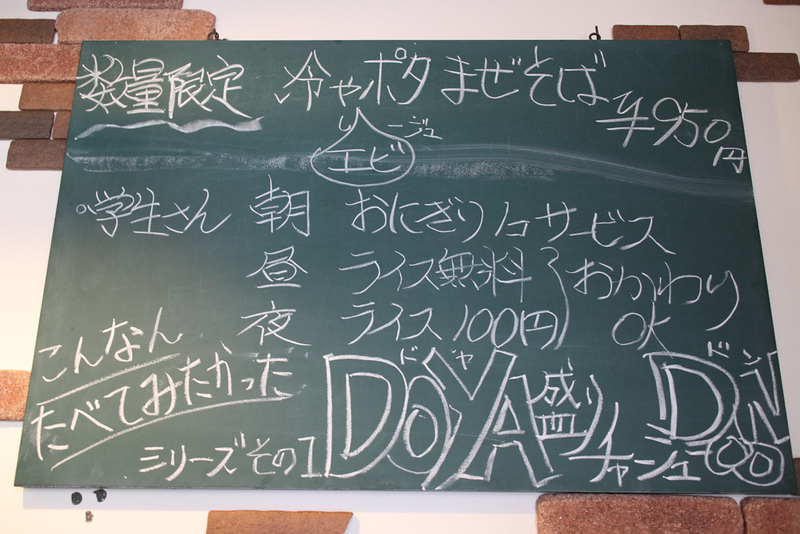 数量限定 冷やポタまぜそば ¥950円
エビ
学生さん 朝 おにぎり1コサービス
昼 ライス無料 おかわり
夜 ライス100円 OK
こんなん
たべてみたかった
シリーズその1 DOYA盛り チャーシュー
ドヤ